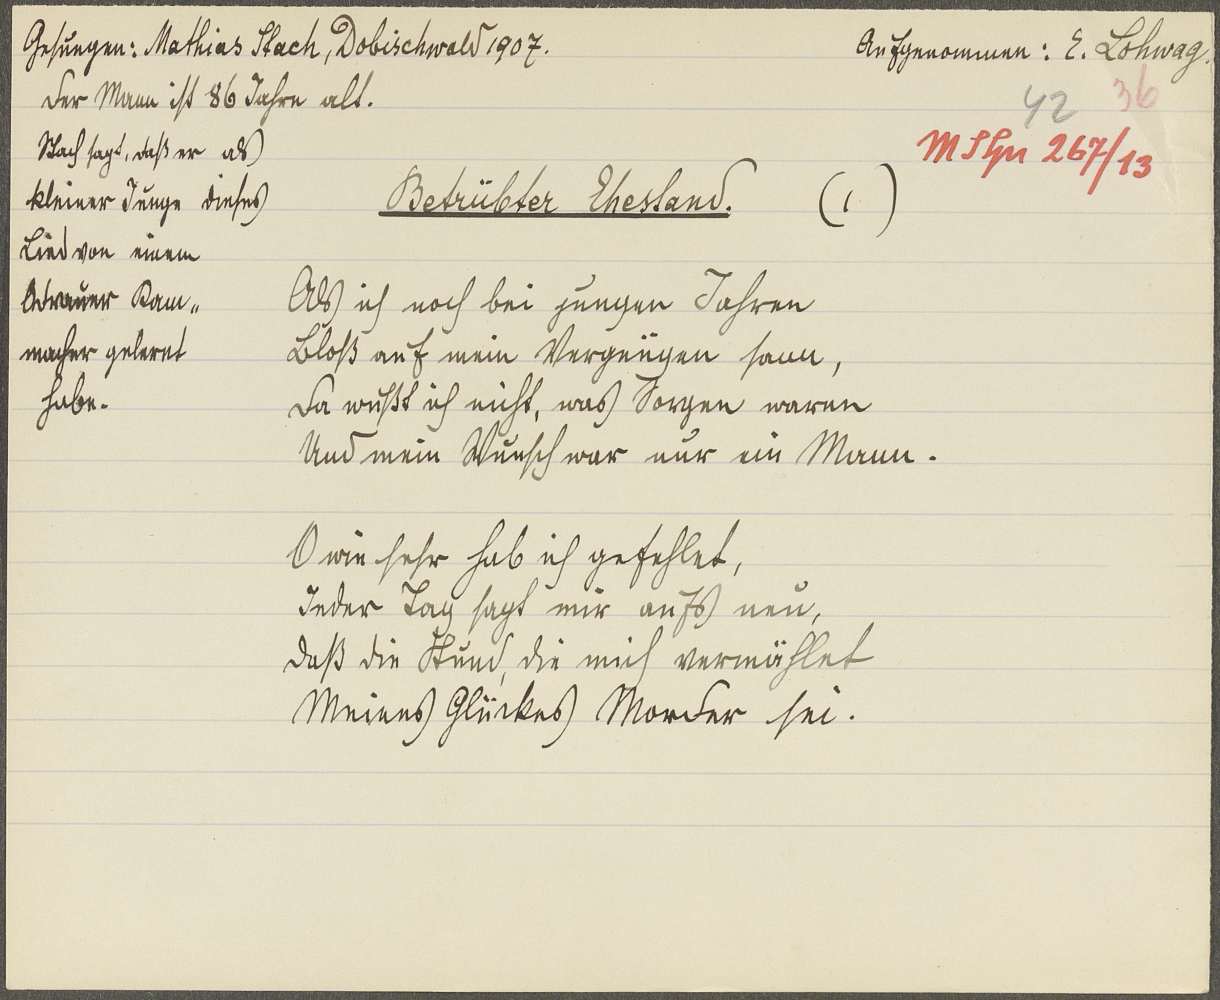 Gesungen: Mathias Stach, Dobischwald 1907.
Aufgenommen: E. Lohwag.
Der Mann ist 86 Jahre alt.
42 36
M Schn 267/13
Stach sagt, daß er als
kleiner Junge dieses
Lied von einem
Odrauer Kam„
macher gelernt
habe.
Betrübter Ehestand. (1)
Als ich noch bei jungen Jahren
Bloß auf mein Vergnügen sann,
Da wußt ich nicht, was Sorgen waren
Und mein Wunsch war nur ein Mann.
O wie sehr hab ich gefehlet,
Jeder Tag sagt mir aufs neu,
Daß die Stund, die mich vermählet
Meines Glückes Morder sei.